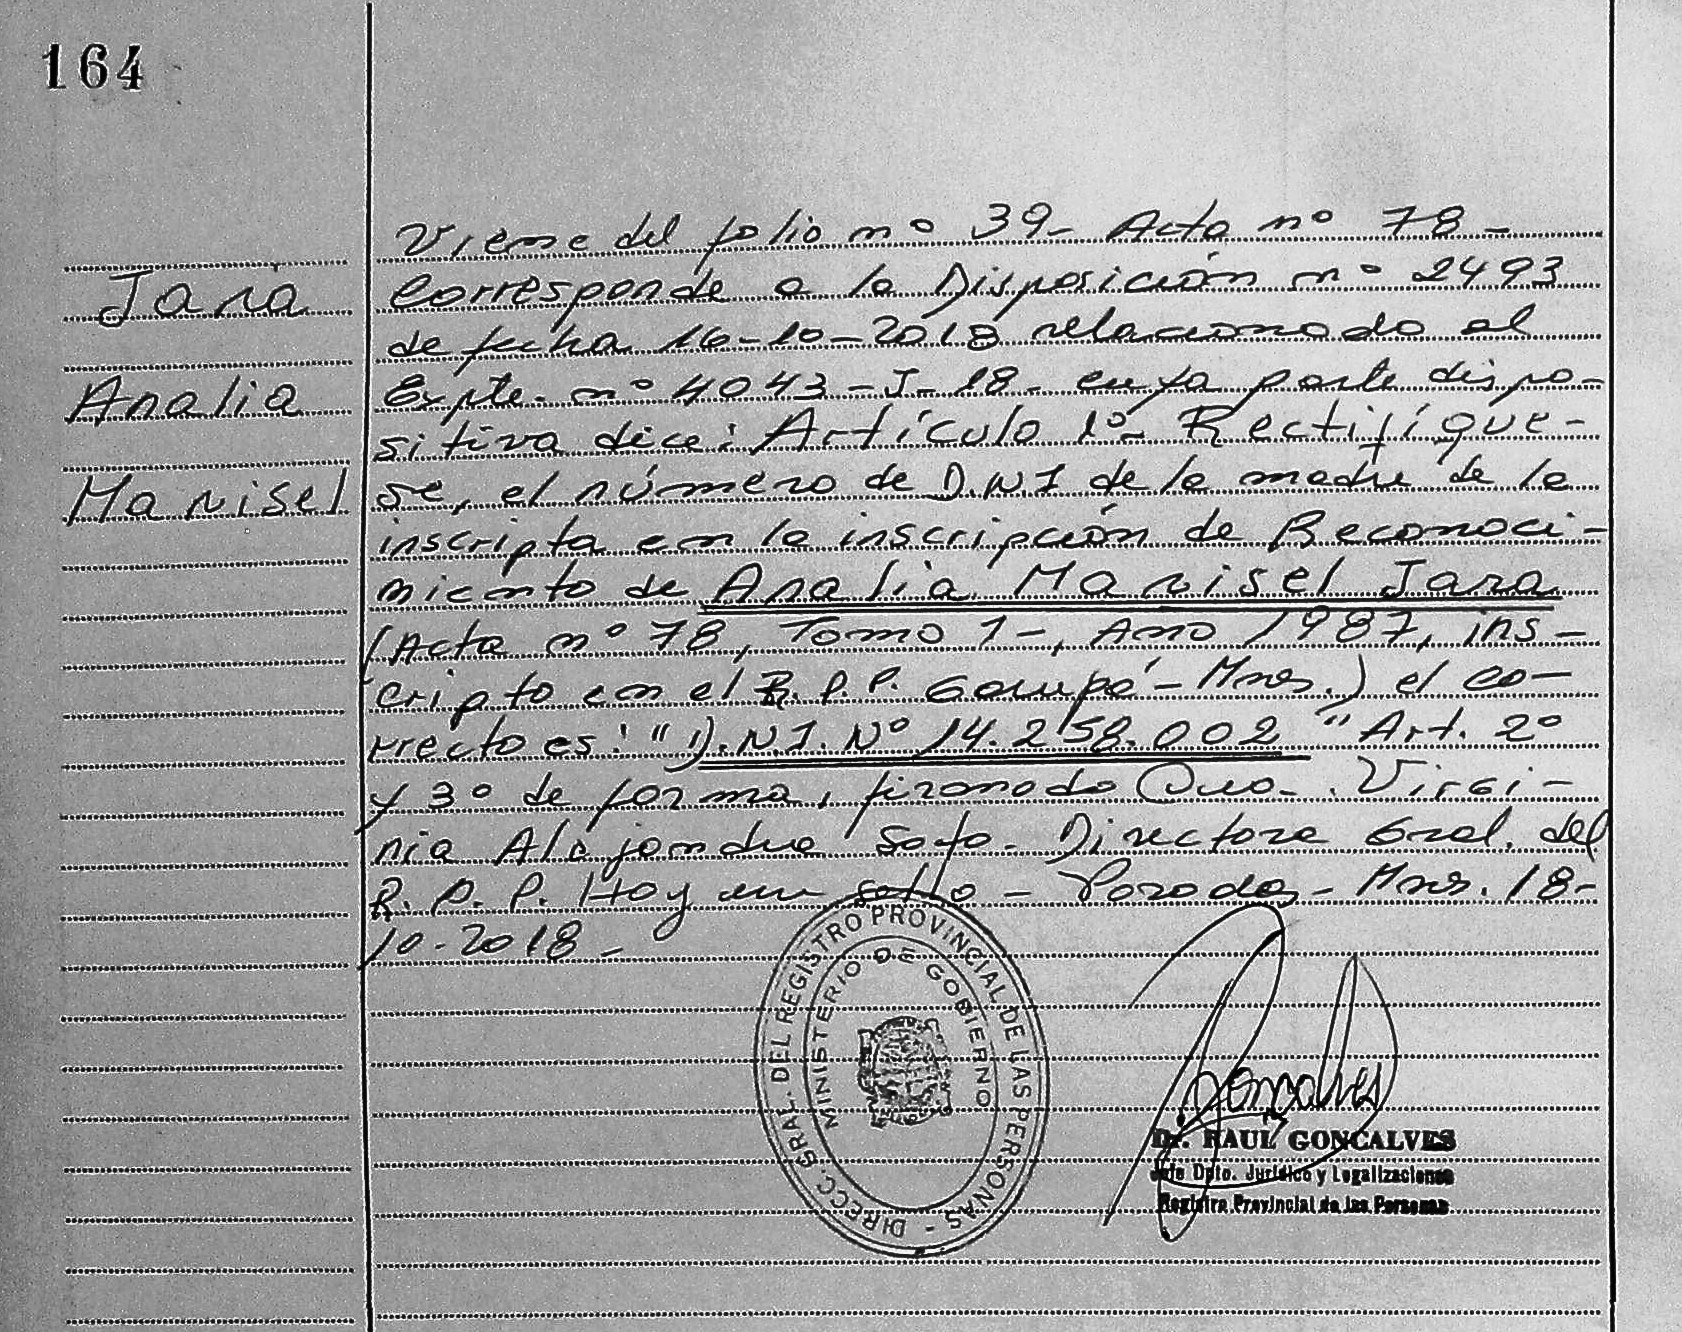 164
Jara
Analia
Marisel
Viene del folio nº 39- Acta nº 78-
Corresponde a la Disposición nº 2493
de fecha 16-10-2018 relacionado al
Expte. nº 4043-J-18- cuya parte dispo-
sitiva dice: Artículo 1º- Rectifíque-
se, el número de D.N.I de la madre de la
inscripta en la inscripción de Reconoci-
miento de Analia Marisel Jara
(Acta nº 78, Tomo 1-, Año 1987, ins-
cripto en el R.P.P. Garupá-Mnes.) el co-
rrecto es: "D.N.I. Nº 14.258.002" Art. 2º
y 3º de forma, firmado Virgi-
nia Alejandra Soto- Directora Gral. del
R.P.P. Hoy un sello- Posadas- Mnes. 18-
10-2018-
DIRECC. GRAL. DEL REGISTRO PROVINCIAL DE LAS PERSONAS -
MINISTERIO DE GOBIERNO
Goncalves
Dr. RAUL GONCALVES
Jefe Dpto. Jurídico y Legalizaciones
Registro Provincial de las Personas